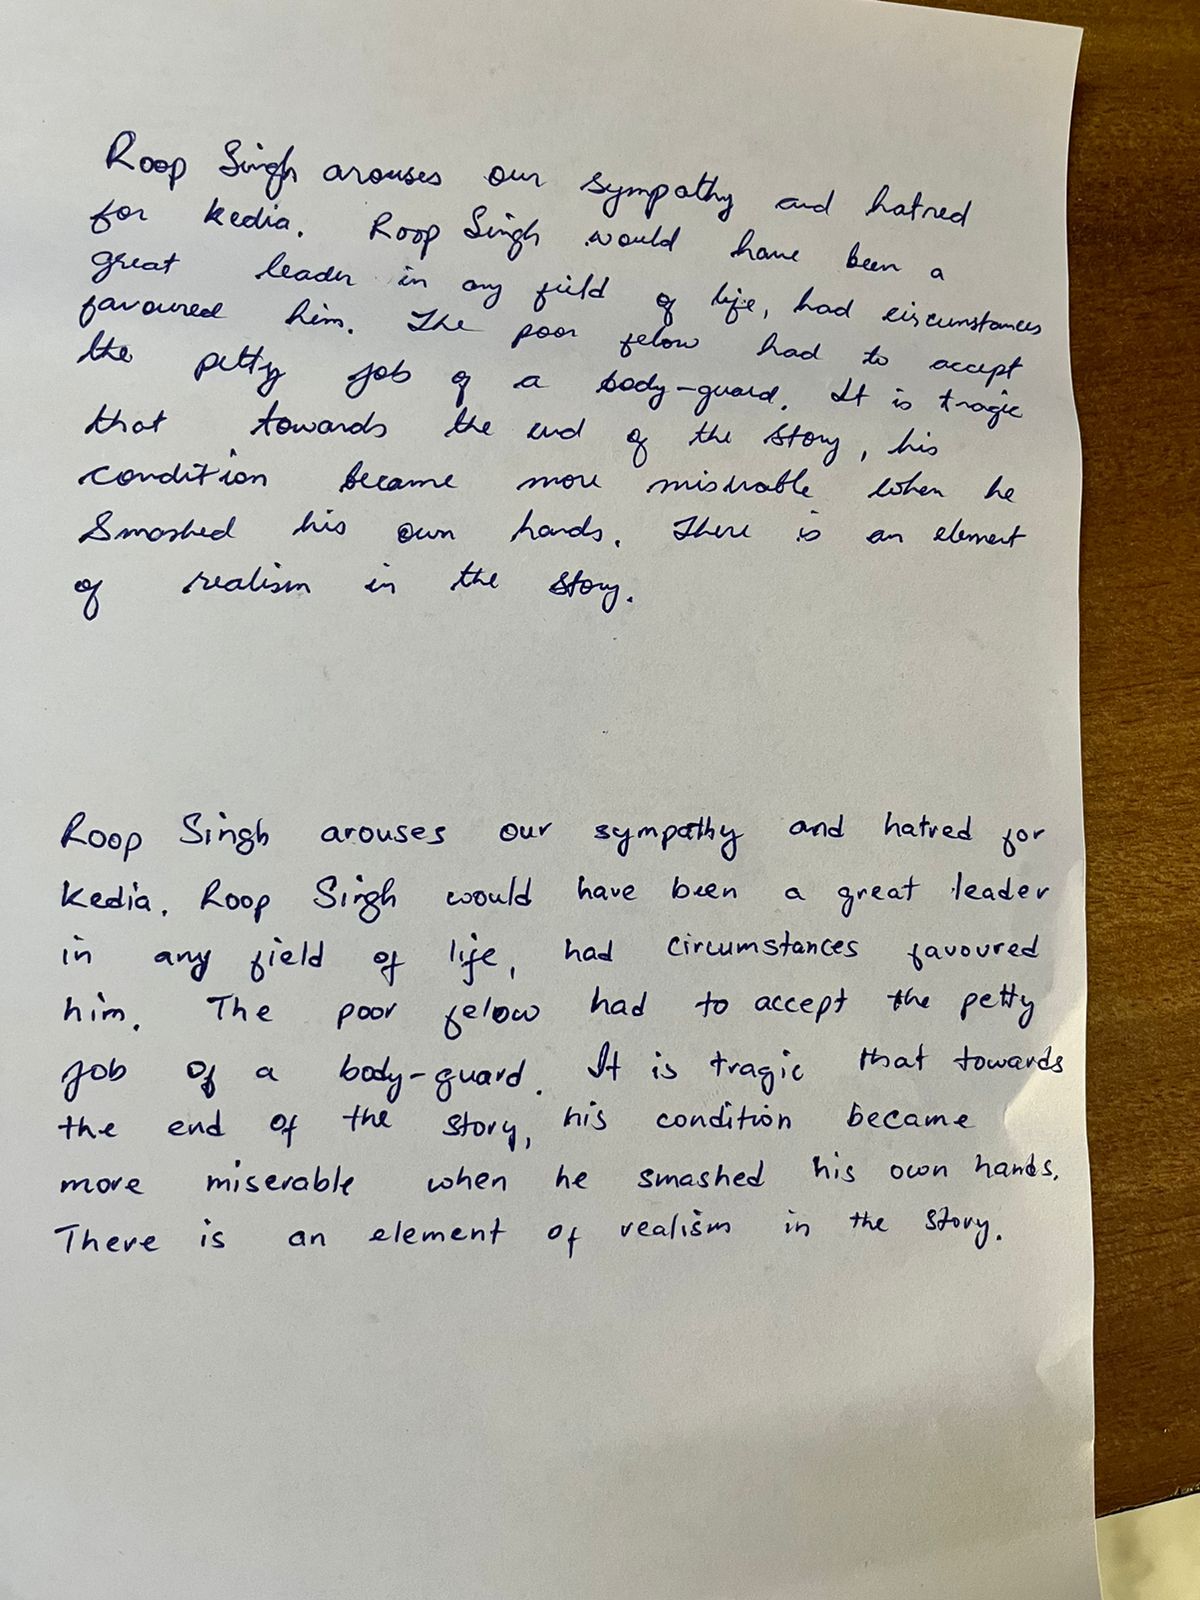 Roop Singh arouses our sympathy and hatred
for Kedia. Roop Singh would have been a
great leader in any field of life, had circumstances
favoured him. The poor felow had to accept
the petty job of a body-guard. It is tragic
that towards the end of the story, his
condition became more miserable when he
Smashed his own hands. There is an element
of realism in the story.
Roop Singh arouses our sympathy and hatred for
Kedia. Roop Singh would have been a great leader
in any field of life, had circumstances favoured
him. The poor felow had to accept the petty
job of a body-guard. It is tragic that towards
the end of the story, his condition became
more miserable when he smashed his own hands.
There is an element of realism in the story.